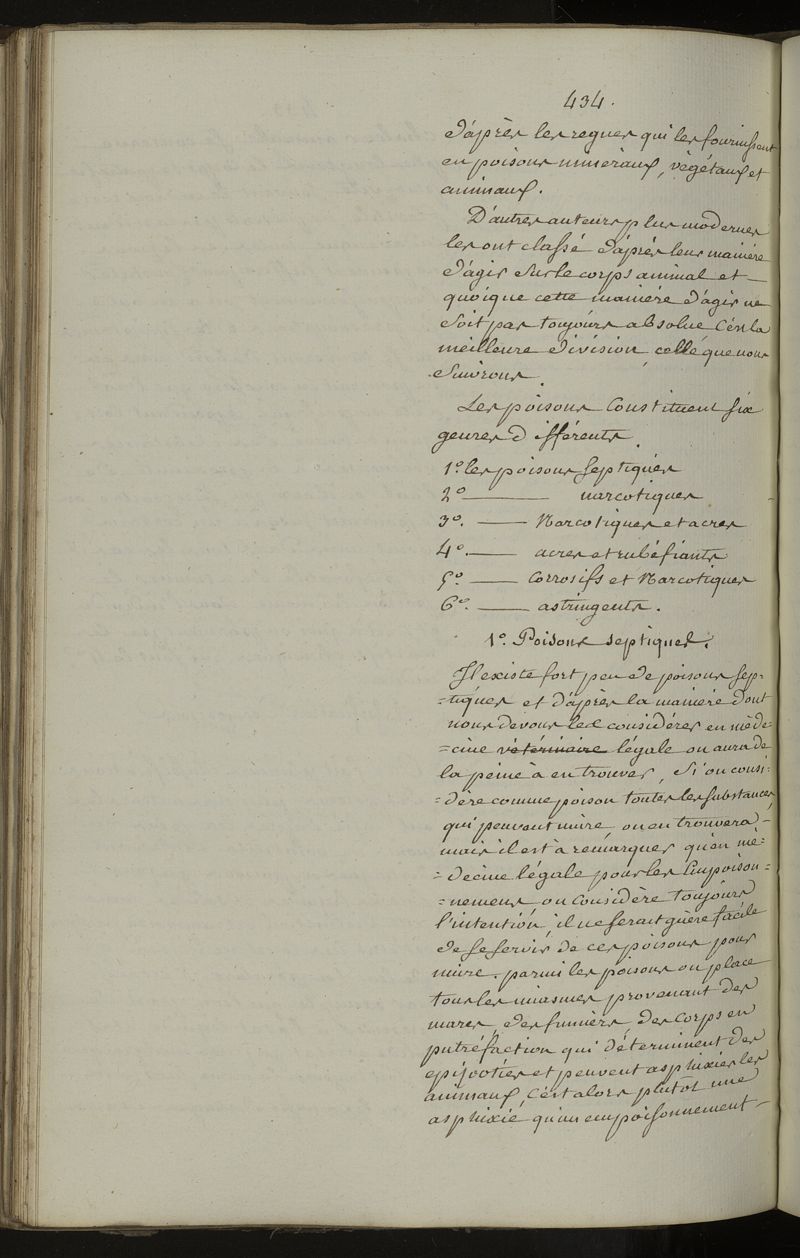 434.
d'après les regnes qui les fournissent
en poisons mineraux, végétaux et
animaux.
D'autres auteurs plus modernes
les ont classé d'après leur maniére
d'agir sur le corps animal et
quoique cette maniére d'agir ne
soit pas toujours absolue c'est la
meilleure division, celle que nous
suivrons.
Les poisons constituent six
genres différents.
1º les poisons septiques
2º ——— narcotiques
3º. —— Narcotiques et acres
4º. —— acres et rubéfiants
5º. —— corrosifs et Narcotiques
6º. —— astringents.
1º. Poisons septiques.
Il existe fort peu de poisons sep-
=tiques et d'après la maniére dont
nous devons les considérer en mède-
=cine vétérinaire légale on aura de
la peine à en trouver, Si on consi-
=dère comme poison toutes les substances
qui peuvent nuire on en trouvera -
mais il est à remarquer qu'en mé-
=decine légale pour les Empoison-
=nemens on considère toujours
l'intention, il ne serait guère facile
de se servir de ces poisons pour
nuire. parmi les poisons on place
tous les miasmes provenant des
mares, des fumièrs, des corps en
putréfaction qui déterminent des
epizooties et peuvent asphixier les
animaux, c'est alors plutôt une
asphixie qu'un empoisonnement -